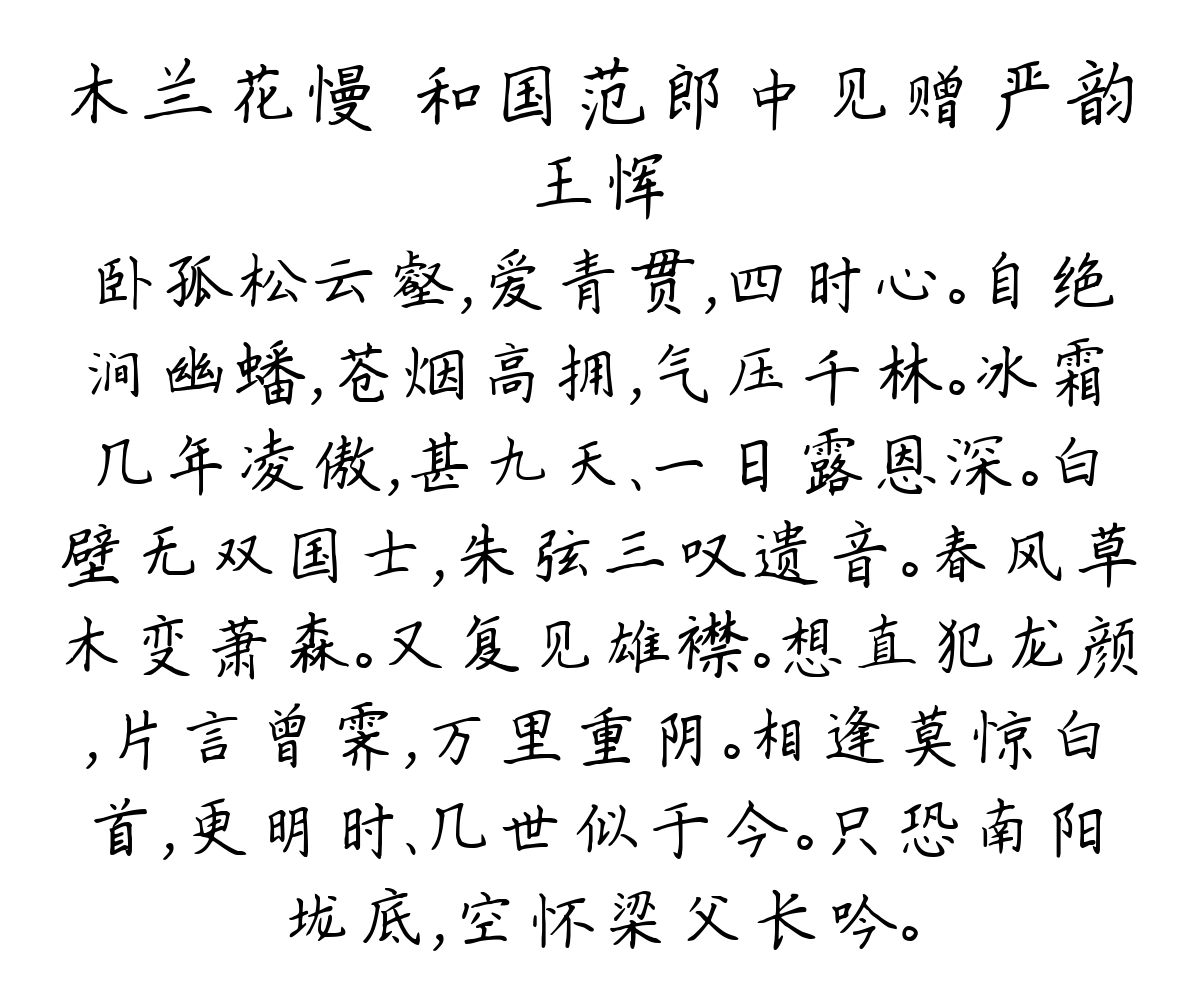 木兰花慢 和国范郎中见赠严韵
王恽
卧孤松云壑,爱青贯,四时心。自绝
涧幽蟠,苍烟高拥,气压千林。冰霜
几年凌傲,甚九天、一日露恩深。白
壁无双国士,朱弦三叹遗音。春风草
木变萧森。又复见雄襟。想直犯龙颜
,片言曾霁,万里重阴。相逢莫惊白
首,更明时、几世似于今。只恐南阳
垅底,空怀梁父长吟。